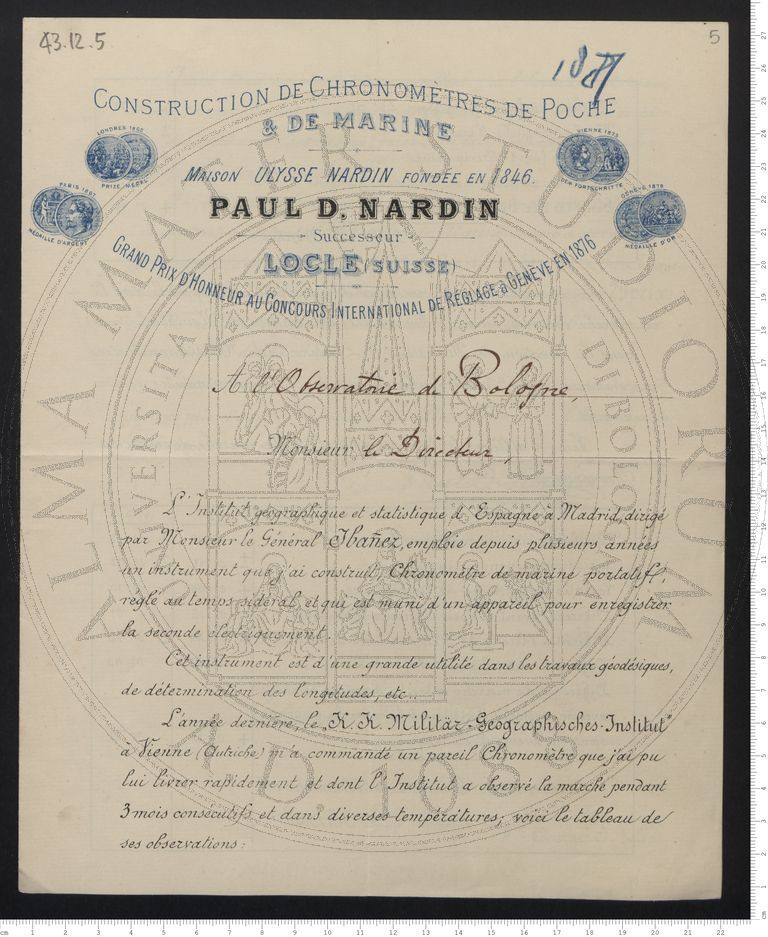 43.12.5
5
CONSTRUCTION DE CHRONOMÈTRES DE POCHE
& DE MARINE
LONDRES 1862
PRIZE MEDAL
VIENNE 1873
DER FORTSCHRITTE
MAISON ULYSSE NARDIN FONDÉE EN 1846.
PARIS 1867
MÉDAILLE D'ARGENT
GENÈVE 1876
MÉDAILLE D'OR
PAUL D. NARDIN
Successeur
LOCLE (SUISSE)
GRAND PRIX D'HONNEUR AU CONCOURS INTERNATIONAL DE RÉGLAGE à GENÈVE EN 1876
A l'Observatoire de Bologne,
Monsieur le Directeur,
L'Institut géographique et statistique d'Espagne à Madrid, dirigé
par Monsieur le Général Ibañez, emploie depuis plusieurs années
un instrument que j'ai construit, Chronomètre de marine portatif,
réglé au temps sidéral, et qui est muni d'un appareil pour enregistrer
la seconde électriquement.
Cet instrument est d'une grande utilité dans les travaux géodésiques,
de détermination des longitudes, etc..
L'année dernière, le „K. K. Militär-Geographisches-Institut"
à Vienne (Autriche) m'a commandé un pareil Chronomètre que j'ai pu
lui livrer rapidement et dont l'Institut a observé la marche pendant
3 mois consécutifs et dans diverses températures; voici le tableau de
ses observations:
ALMA MATER STUDIORUM
UNIVERSITA DI BOLOGNA
A.D. 1088